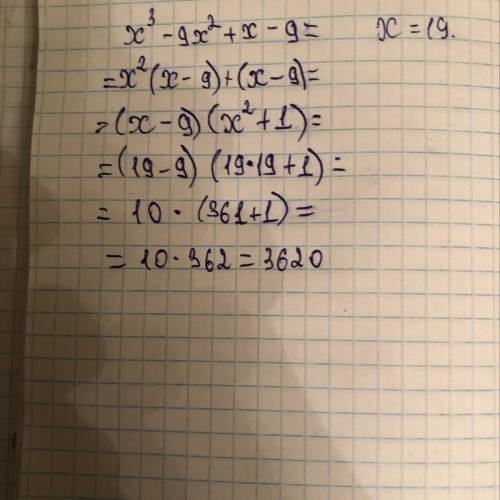 x³ - 9x² + x - 9 = x = 19.
= x²(x - 9) + (x - 9) =
= (x - 9) (x² + 1) =
= (19 - 9) (19·19 + 1) =
= 10 · (361 + 1) =
= 10 · 362 = 3620